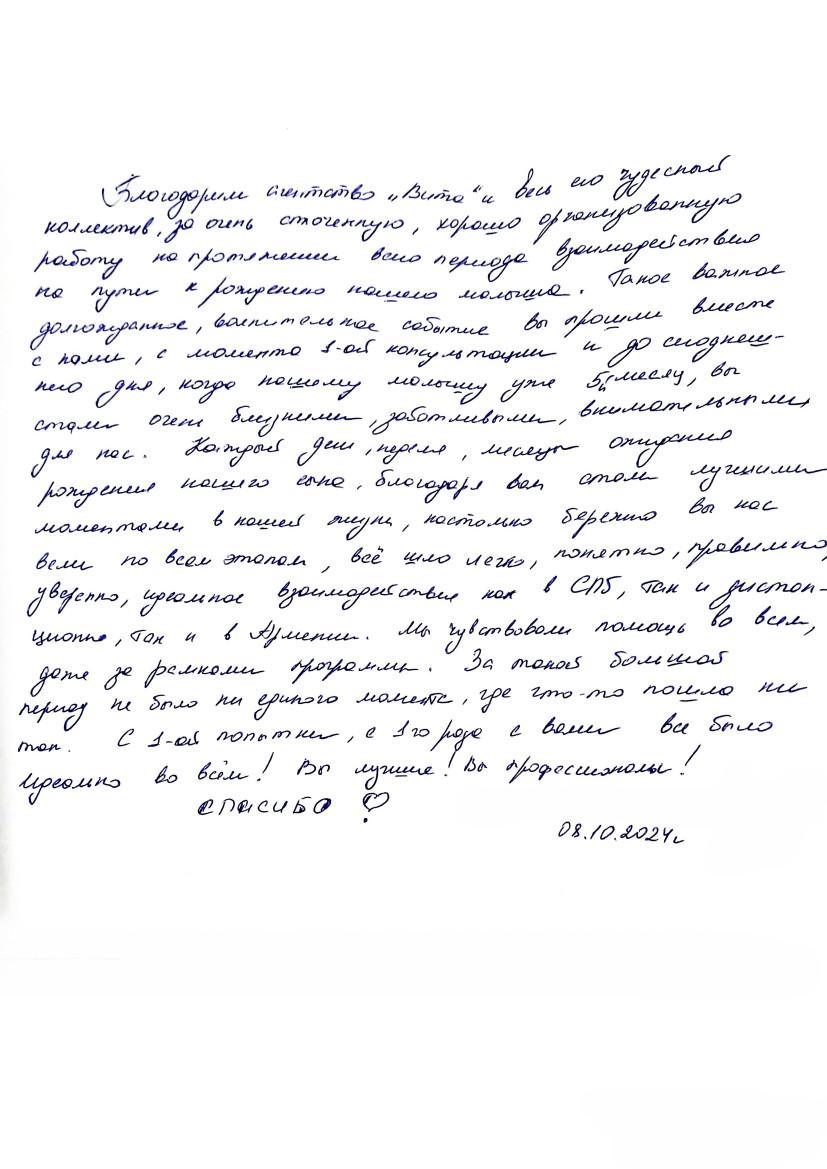 Благодарим агентство „Вита" и весь его чудесный
коллектив, за очень сплоченную, хорошо организованную
работу на протяжении всего периода взаимодействия
на пути к рождению нашего малыша. Такое важное
долгожданное, волнительное событие вы прошли вместе
с нами, с момента 1-ой консультации и до сегоднеш-
него дня, когда нашему малышу уже 5ый месяц, вы
стали очень близкими, заботливыми, внимательными
для нас. Каждый день, неделя, месяцы ожидания
рождения нашего сына, благодаря вам стали лучшими
моментами в нашей жизни, настолько бережно вы нас
вели по всем этапам, всё шло легко, понятно, правильно,
уверенно, идеальное взаимодействие как в СПб, так и дистан-
ционно, так и в Армении. Мы чувствовали помощь во всем,
даже за рамками программы. За такой большой
период не было ни единого момента, где что-то пошло не
так. С 1-ой попытки, с 1го раза с вами все было
идеально во всём! Вы лучшие! Вы профессионалы!
СПАСИБО ♡
08.10.2024г